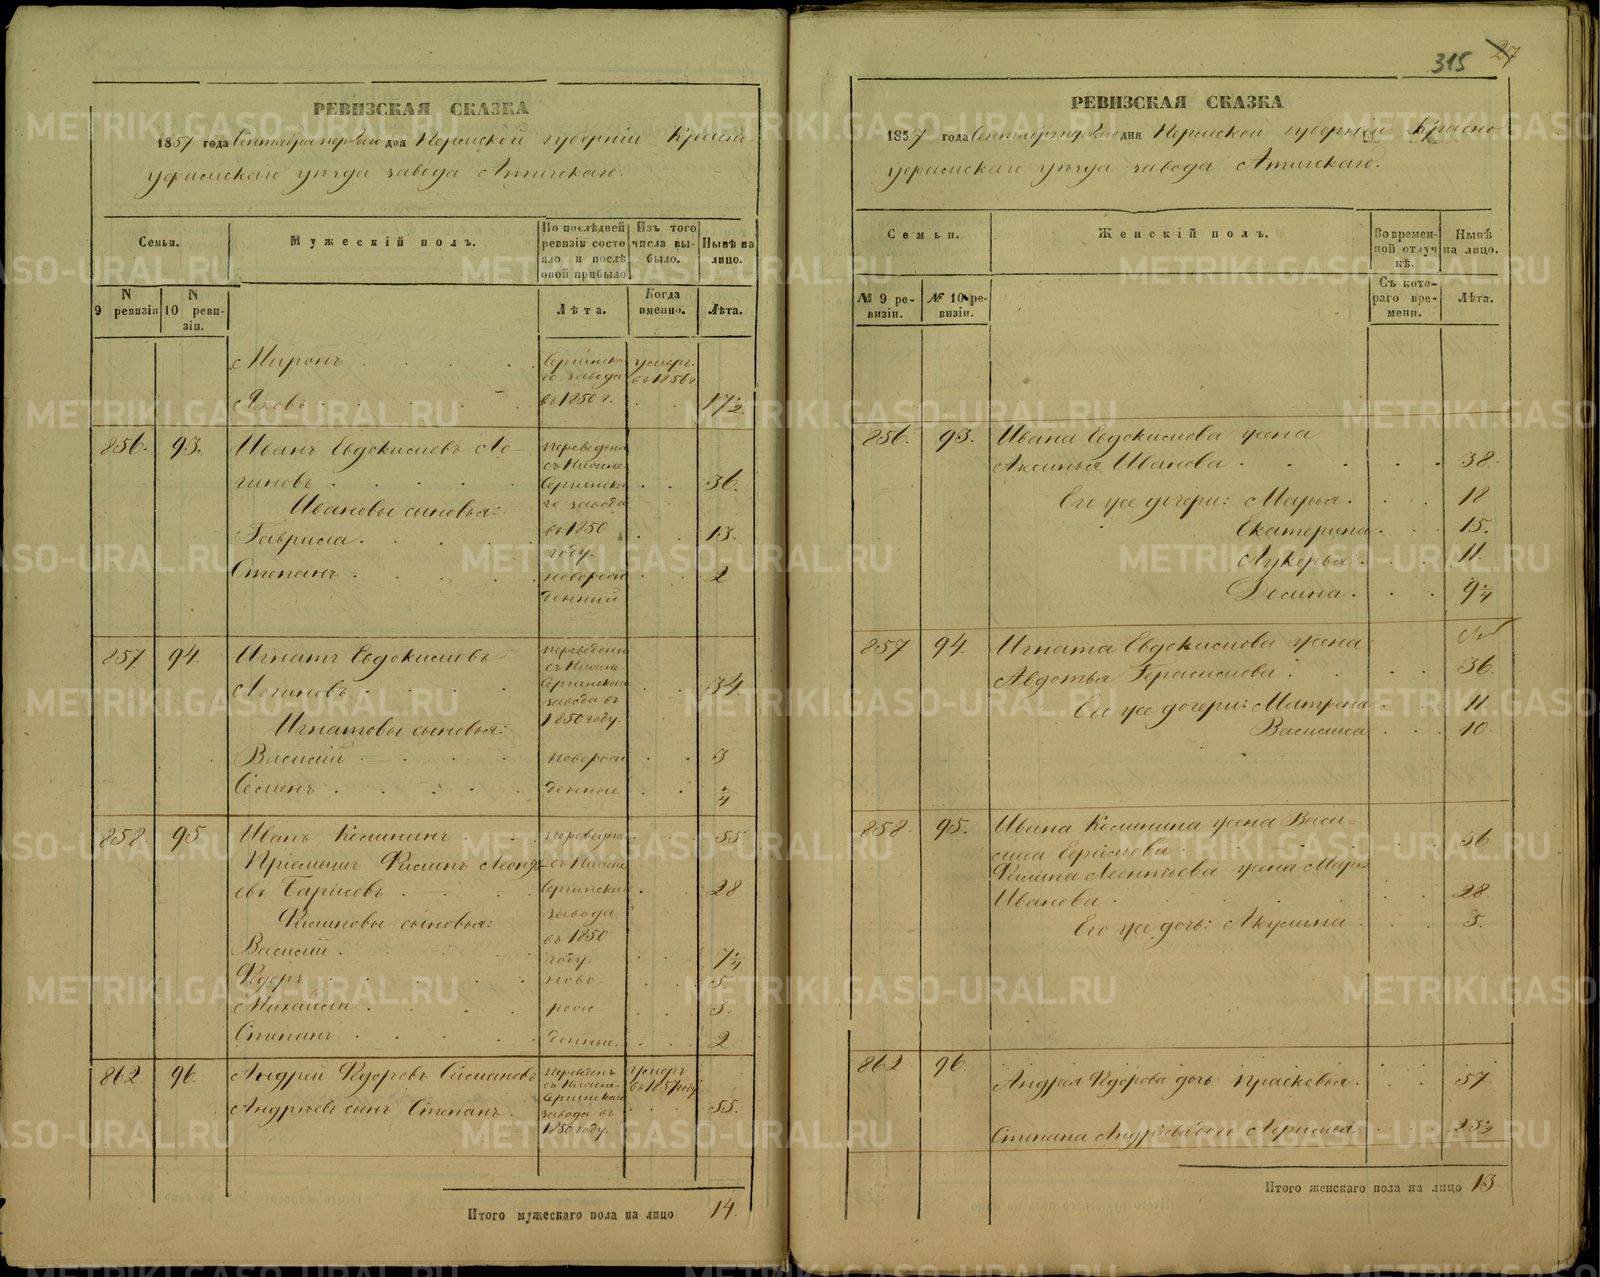 РЕВИЗСКАЯ СКАЗКА
1857 года Сентября первого дня Пермской губернии Красно
уфимскаго уезда завода Атигскаго.
Семьи.
Мужескій полъ.
По послѣдней ревизіи состояло и послѣ оной прибыло.
Изъ того числа выбыло.
Нынѣ на лицо.
N 9 ревизіи
N 10 ревизіи.
Лѣта.
Когда именно.
Лѣта.
Миронъ умеръ въ 1856 г.
Яковъ въ 1850 г. 17½
856. 93. Иванъ Евдокимовъ Ло-
гиновъ 36.
переведены съ Нижне Сергинскаго завода въ 1850 году.
Ивановы сыновья:
Гаврила 13.
Степанъ новорожденный 2
857 94. Игнатъ Евдокимовъ
Логиновъ 34
переведены съ Нижне Сергинскаго завода въ 1850 году.
Игнатовы сыновья:
Василій 3
Семенъ ¼
новорожденные
858. 95. Иванъ 55
28
завода въ 1850 году.
Филиповы сыновья:
Василій 7¼
Ѳедоръ 5
Михаила 3.
Степанъ 2
новорожденные
862. 96. Андрей Ѳедоровъ умеръ въ 1857 году
Андреевъ сынъ Степанъ 55.
переведенъ съ Нижне-Сергинскаго завода въ 1850 году.
Итого мужескаго пола на лицо 14.
315 27
РЕВИЗСКАЯ СКАЗКА
1857 года Сентября первого дня Пермской губерніи Красно
уфимскаго уезда завода Атигскаго.
Семьи.
Женскій полъ.
Во временной отлучкѣ.
Нынѣ на лицо.
№ 9 ревизіи.
№ 10 ревизіи.
Съ котораго времени.
Лѣта.
856. 93. Ивана Евдокимова жена
Аксинья Иванова 38.
Его же дочери: Марья 18
Екатерина 15.
Лукерья 11.
9¼
857 94. Игната Евдокимова жена
Авдотья Герасимова 36.
Его же дочери: Матрена 11.
Василиса 10.
858. 95. Ивана жена Васи=
лиса Ефимова 56
Филипа Леонтьева жена Марья
Иванова 28.
Его же дочь: Акулина 3.
862 96. Андрея Ѳедорова дочь Прасковья 57.
Степана Андреева
Итого женскаго пола на лицо 13.
METRIKI.GASO-URAL.RU